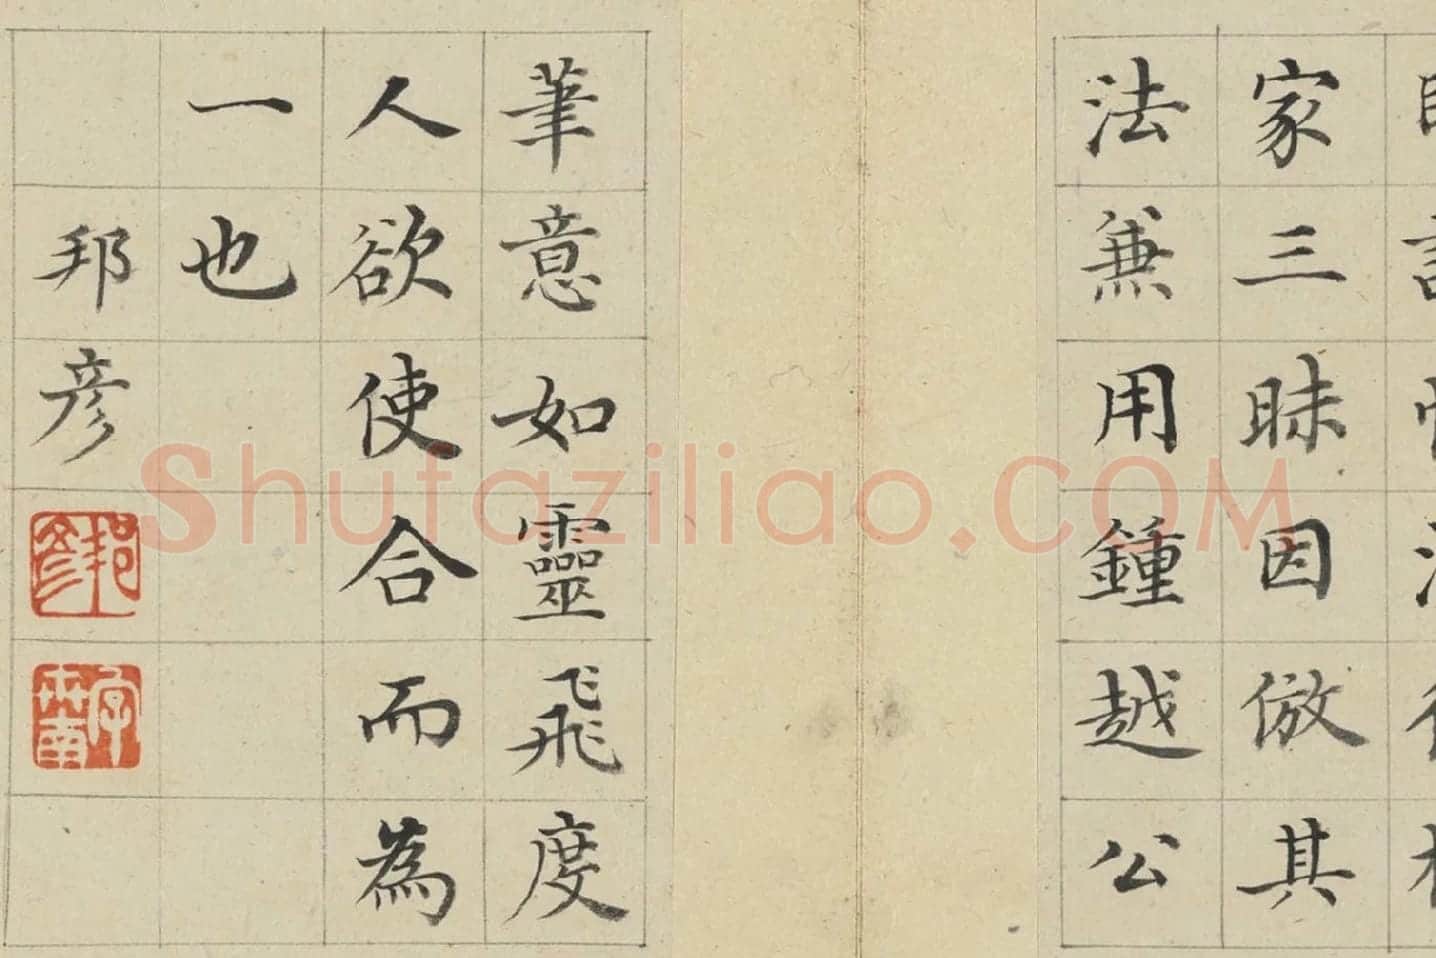 家三昧因倣其
法兼用鍾越公
筆意如靈飛度
人欲使合而為
一也
邦彦
邦彦
字世南
Shufaziliao.COM